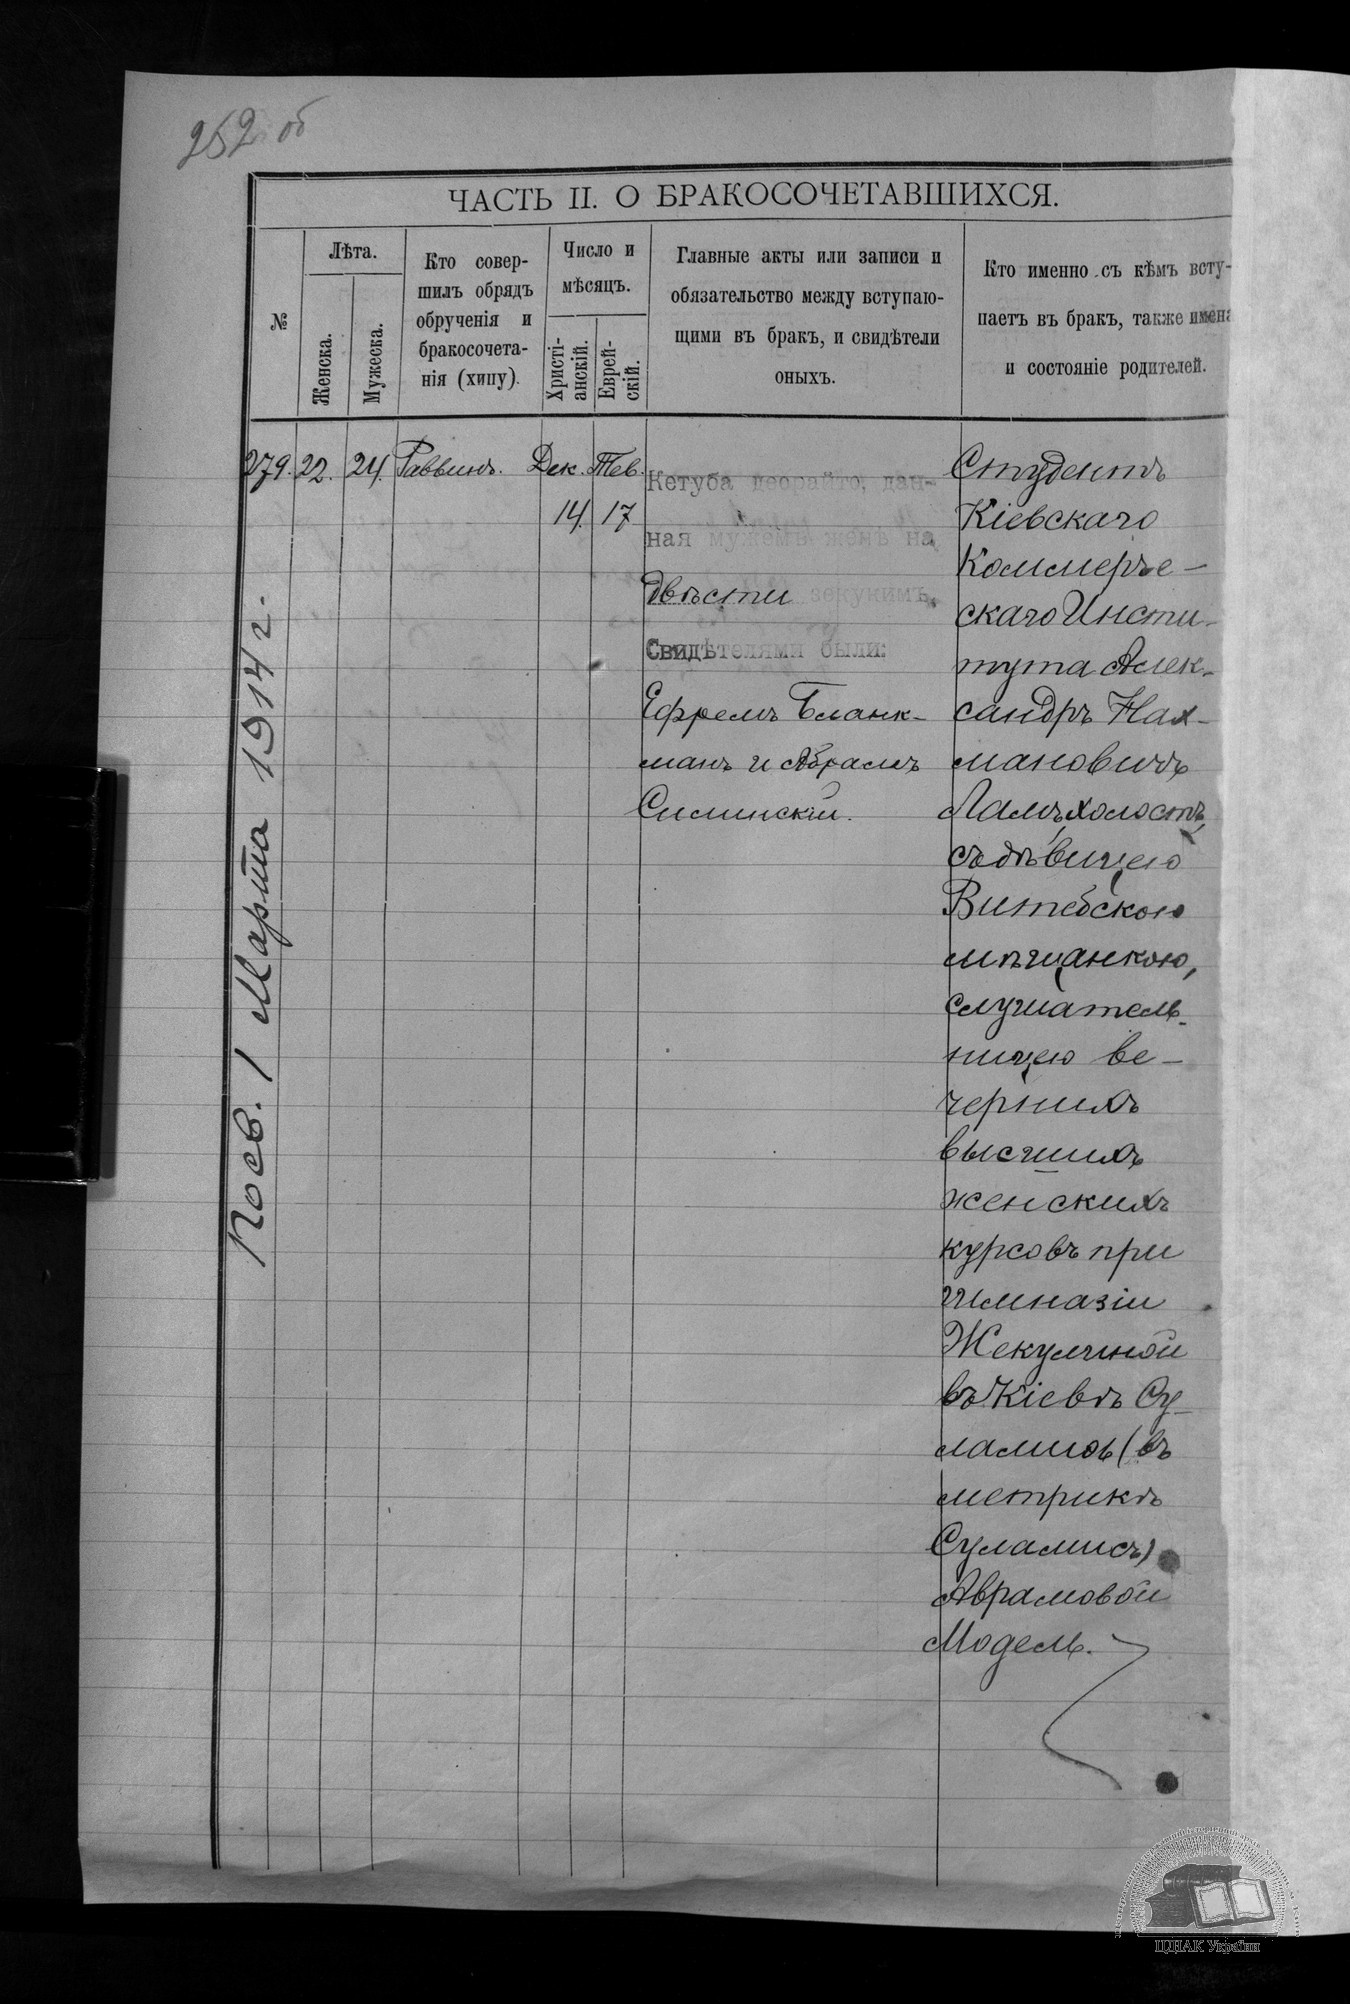 252 об
ЧАСТЬ II. О БРАКОСОЧЕТАВШИХСЯ.
№
Лѣта.
Женска.
Мужеска.
Кто совер-
шилъ обрядъ
обрученія и
бракосочета-
нія (хипу).
Число и
мѣсяцъ.
Христі-
анскій.
Еврей-
скій.
Главные акты или записи и
обязательство между вступаю-
щими въ бракъ, и свидѣтели
оныхъ.
Кто именно съ кѣмъ всту-
паетъ въ бракъ, также имена
и состояніе родителей.
279. 22. 24. Раввинъ. Дек. Тев.
14. 17
Кетуба деорайто, дан-
ная мужемъ женѣ на
двѣсти зекукимъ.
Свидѣтелями были:
Ефремъ Бланк-
манъ и Абрамъ
Силинскій.
Студентъ
Кіевскаго
Коммерче-
скаго Инсти-
тута Алек-
сандръ Нах-
мановичъ
Ламъ, холостъ,
съ дѣвицею
Витебскою
мѣщанкою,
слушатель-
ницею ве-
чернихъ
высшихъ
женскихъ
курсовъ при
гимназіи
Жекулиной
въ Кіевѣ Су-
ламиѳь (въ
метрикѣ
Суламисъ)
Аврамовой
Модель.
Посв. 1 Марта 1914 г.
ЦДІАК України